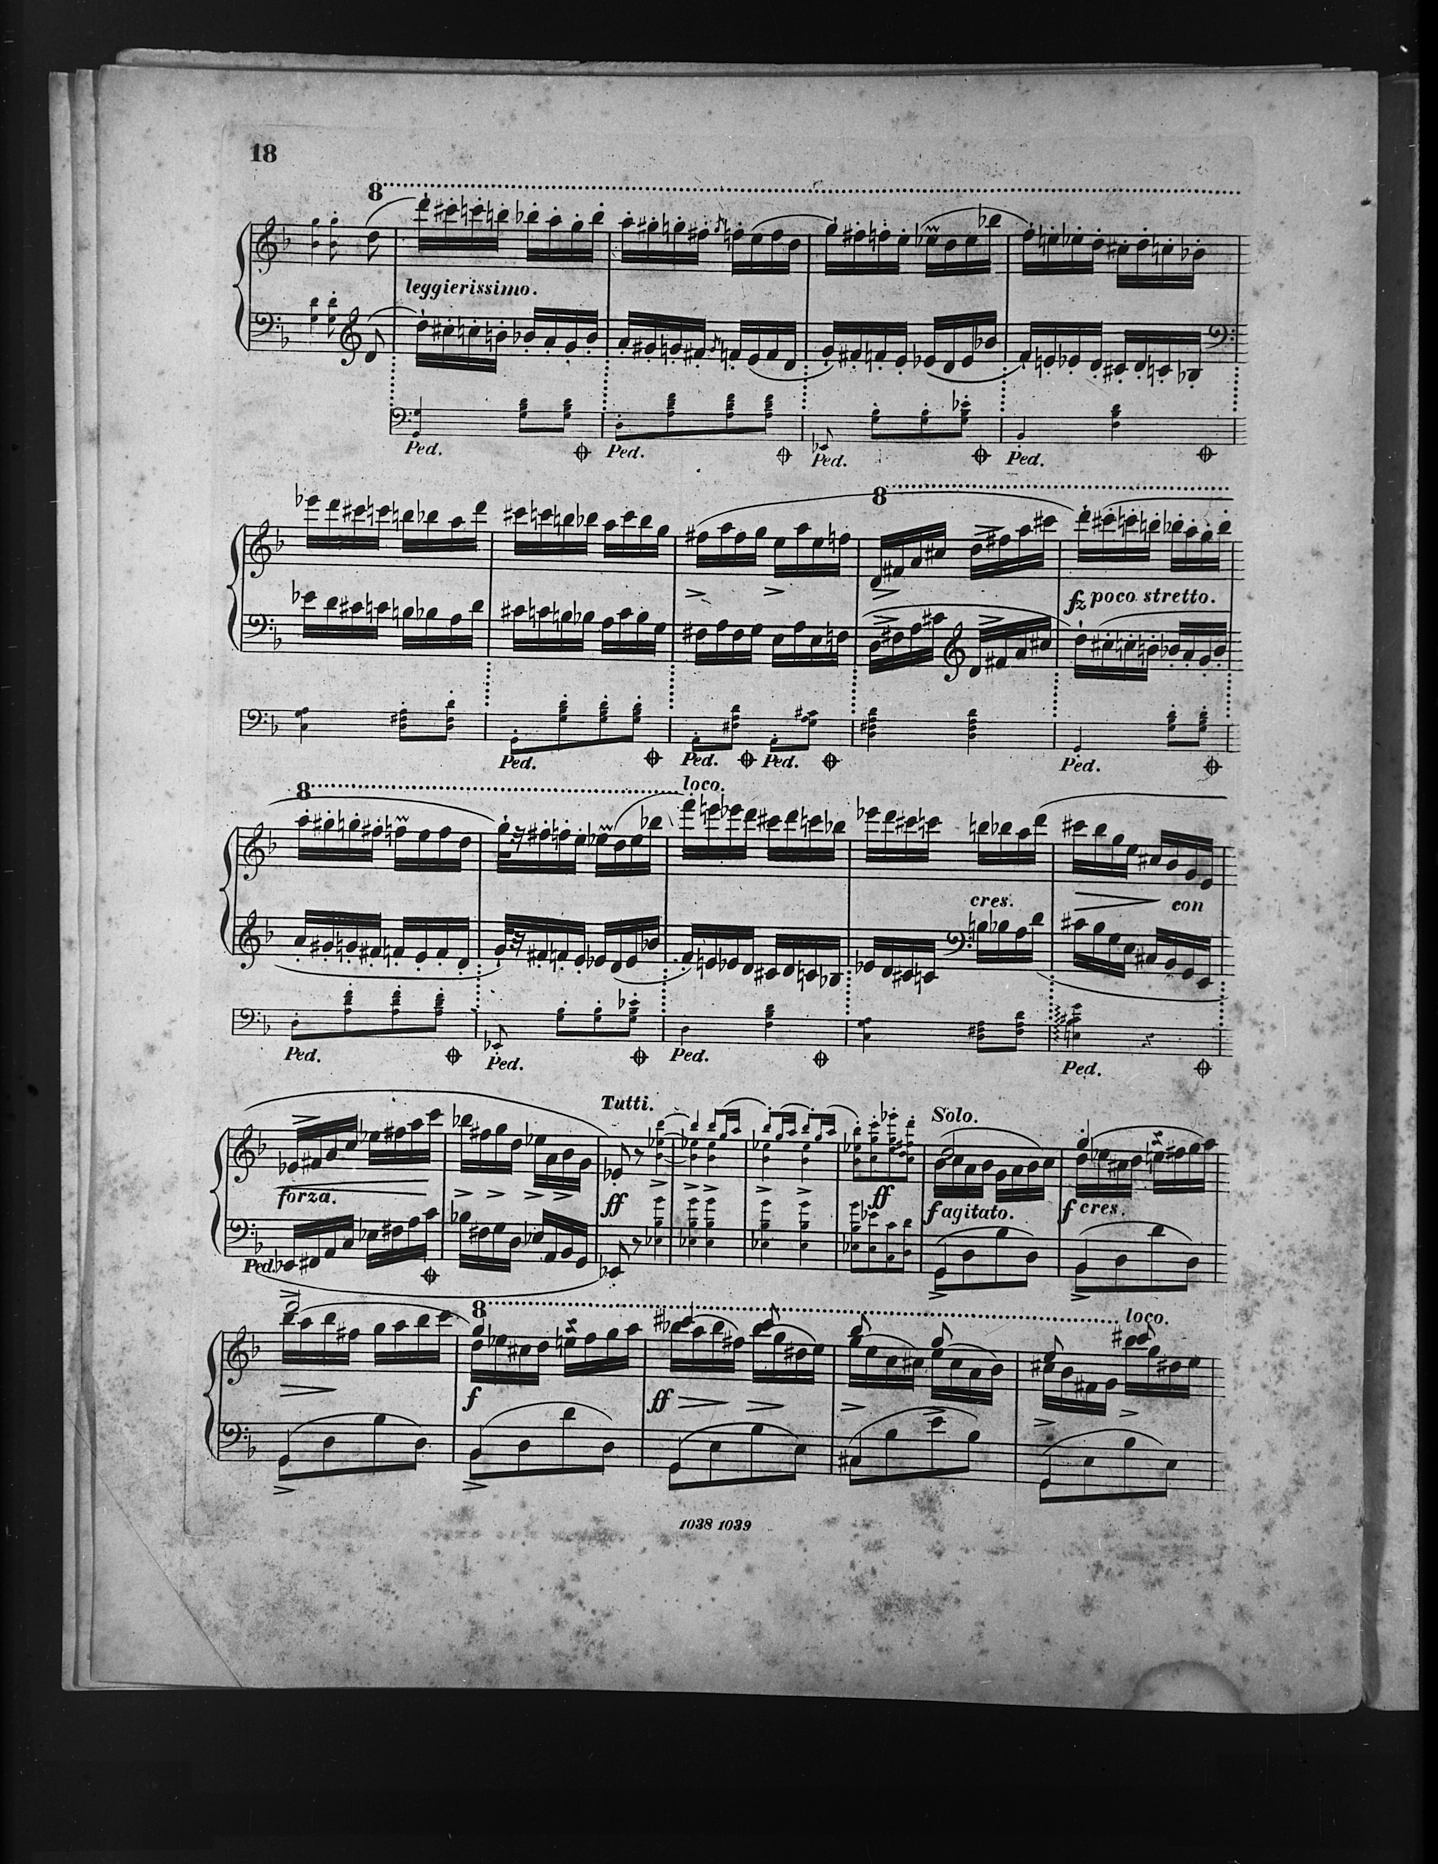 18
8
leggierissimo.
Ped. Ped. Ped. Ped.
8
fz poco stretto.
Ped. Ped. Ped. Ped.
8 loco.
cres. con
Ped. Ped. Ped. Ped.
Tutti. Solo.
forza. ff ff f agitato. f cres.
Ped.
8 loco.
f ff
1038 1039